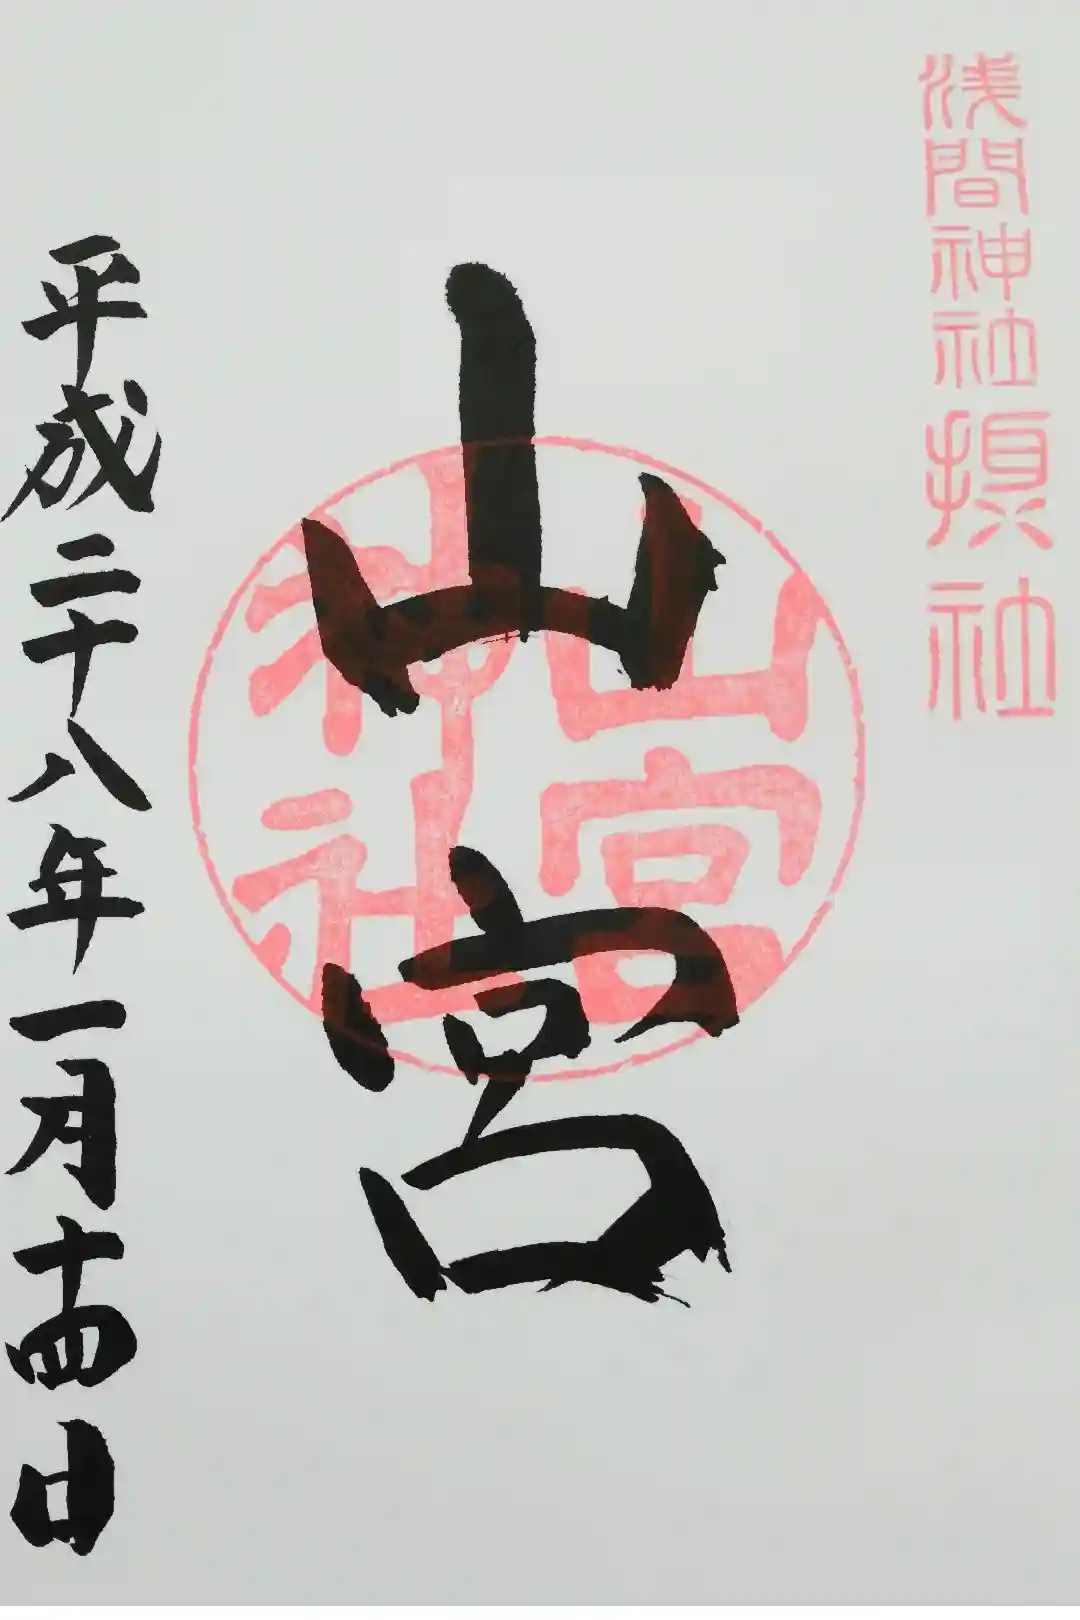 浅間神社摂社
山宮
山宮
神社
平成二十八年一月十四日